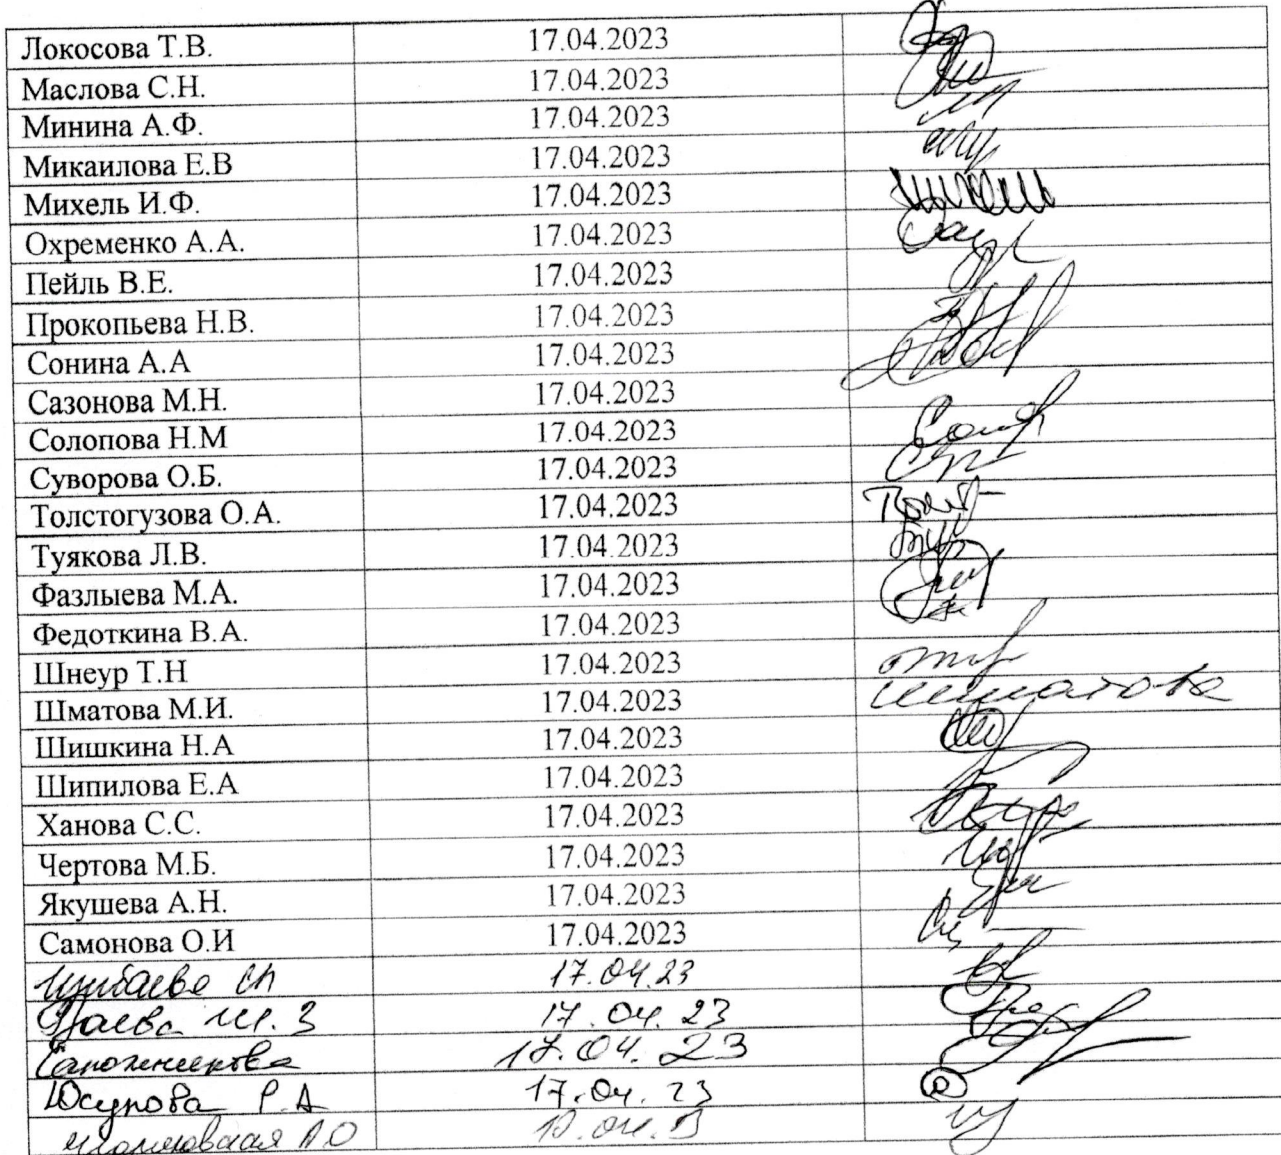 Локосова Т.В. 17.04.2023
Маслова С.Н. 17.04.2023
Минина А.Ф. 17.04.2023
Микаилова Е.В 17.04.2023
Михель И.Ф. 17.04.2023
Охременко А.А. 17.04.2023
Пейль В.Е. 17.04.2023
Прокопьева Н.В. 17.04.2023
Сонина А.А 17.04.2023
Сазонова М.Н. 17.04.2023
Солопова Н.М 17.04.2023
Суворова О.Б. 17.04.2023
Толстогузова О.А. 17.04.2023
Туякова Л.В. 17.04.2023
Фазлыева М.А. 17.04.2023
Федоткина В.А. 17.04.2023
Шнеур Т.Н 17.04.2023
Шматова М.И. 17.04.2023 Шматова
Шишкина Н.А 17.04.2023
Шипилова Е.А 17.04.2023
Ханова С.С. 17.04.2023
Чертова М.Б. 17.04.2023
Якушева А.Н. 17.04.2023
Самонова О.И 17.04.2023
17.04.23
17.04.23
Сапожникова 17.04.23
Юсупова Р.А 17.04.23